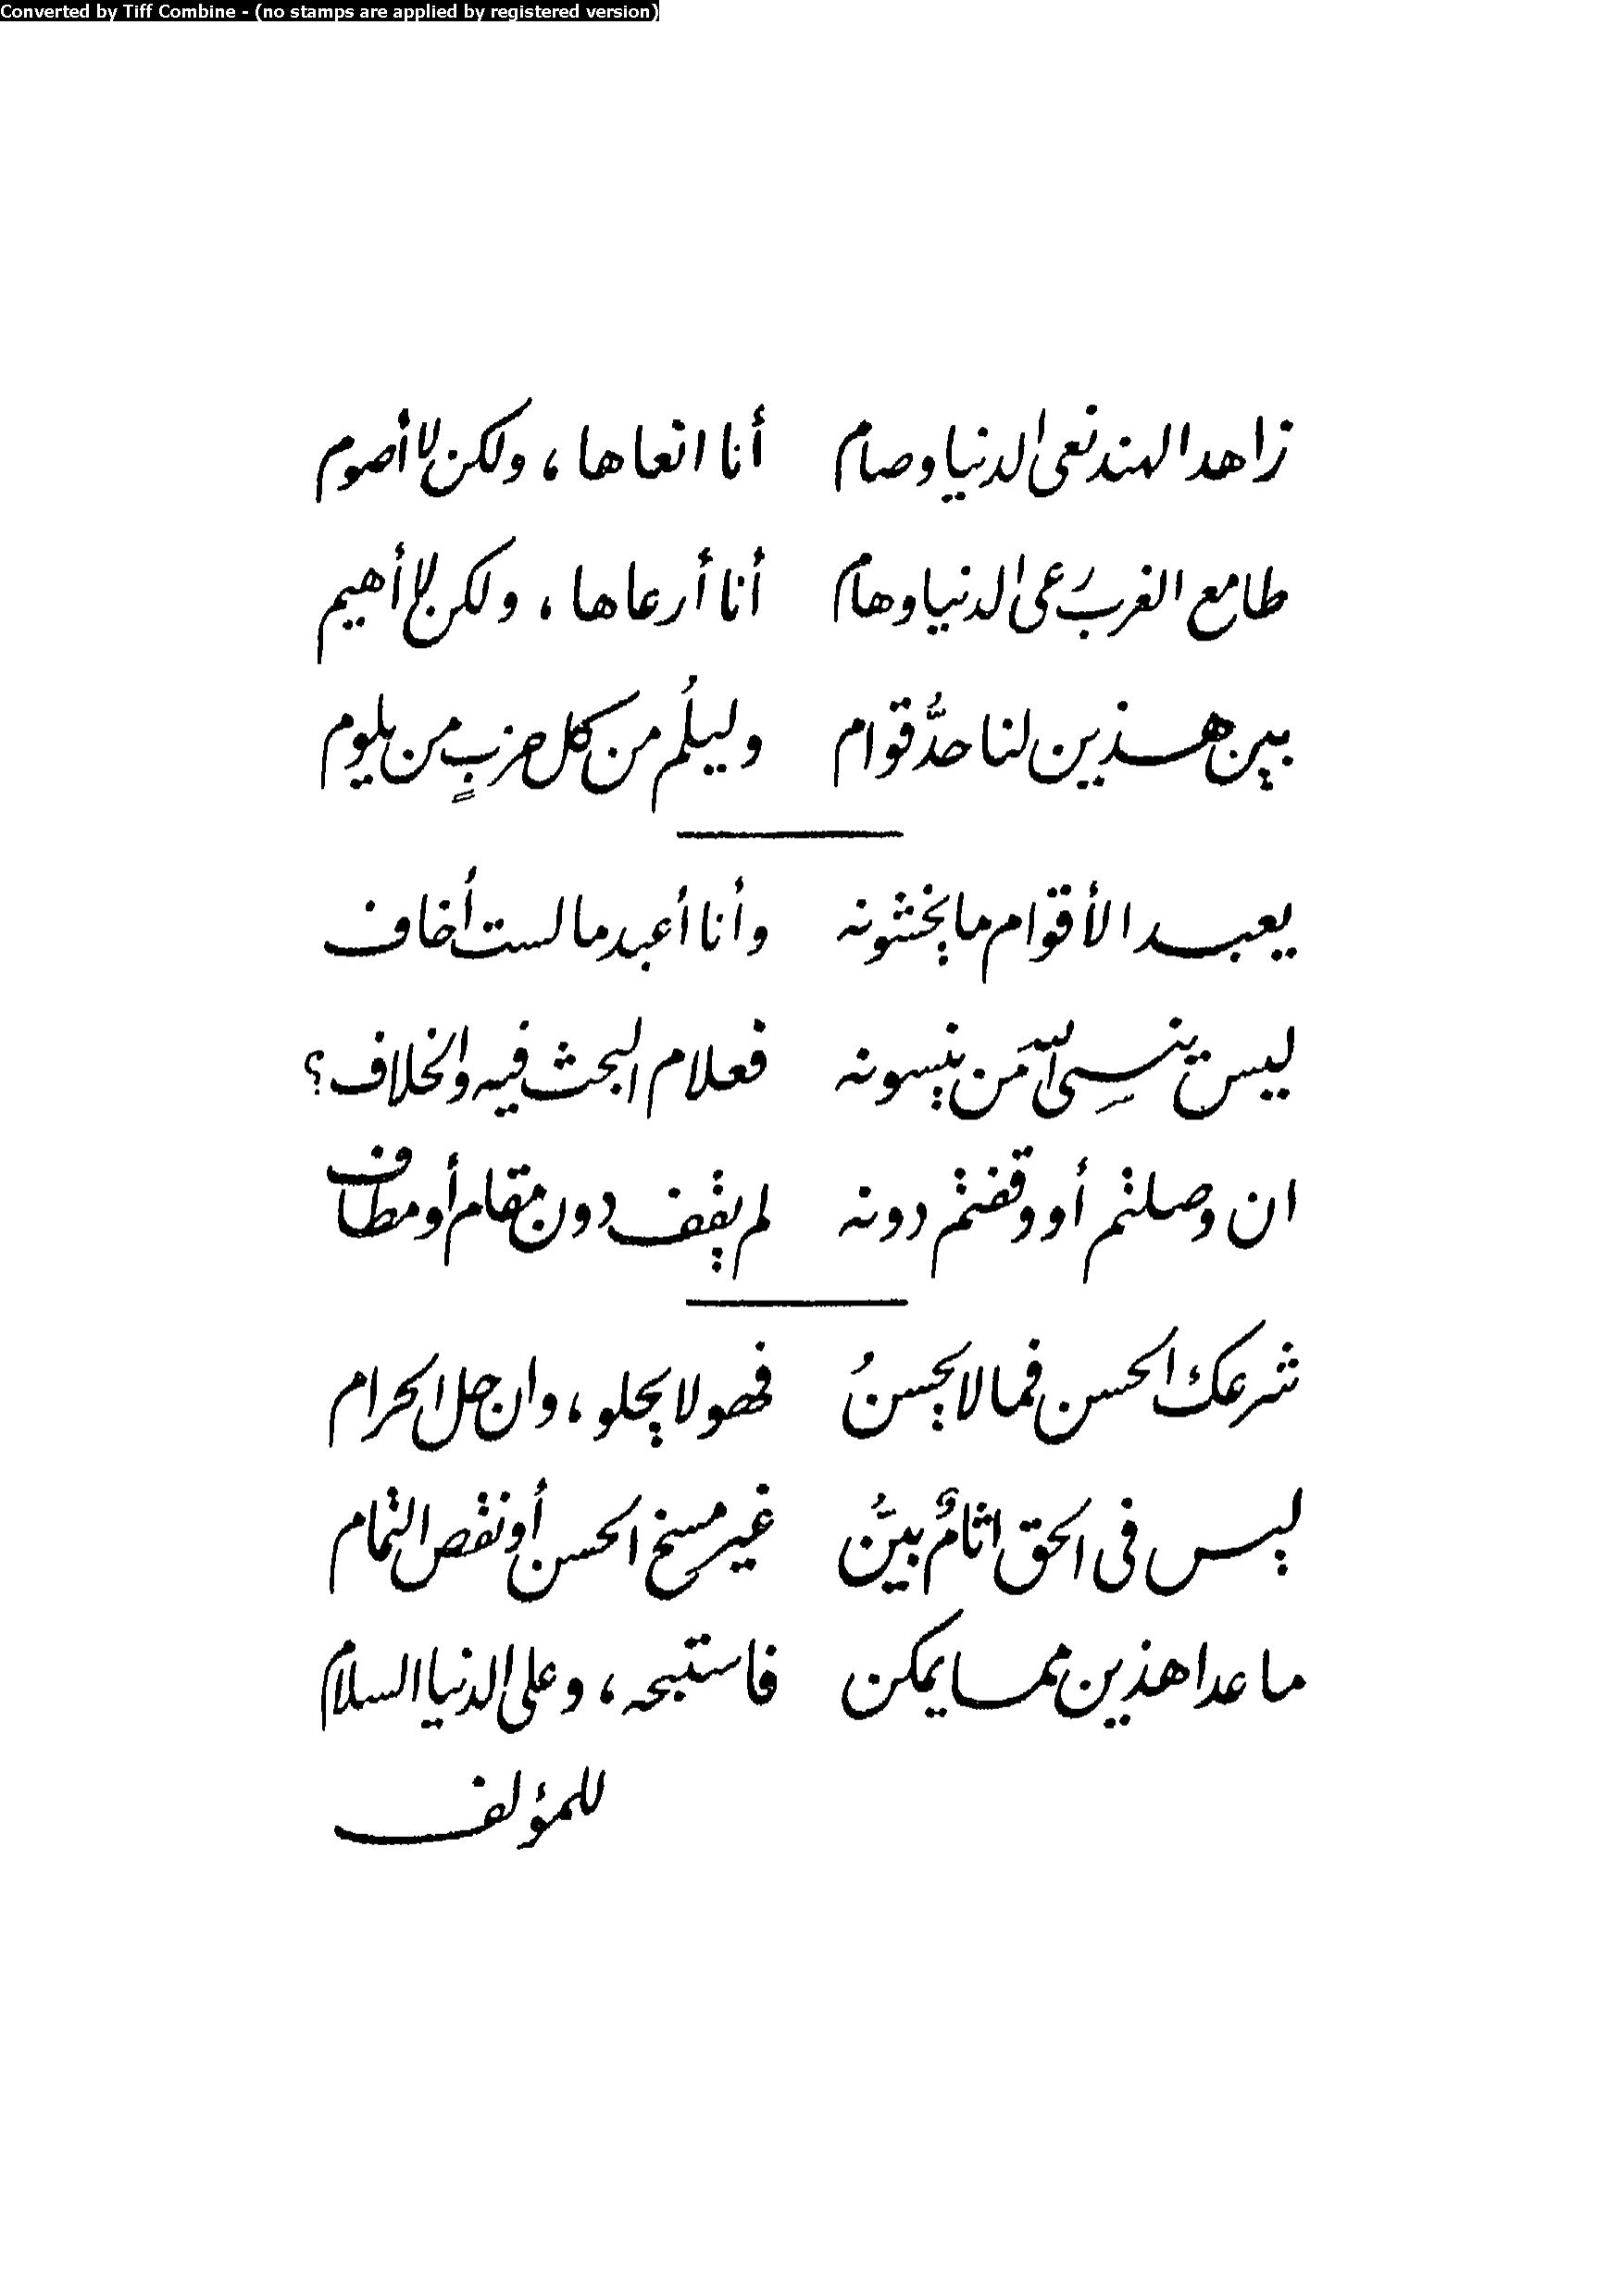 Converted by Tiff Combine - (no stamps are applied by registered version)
زاهد الهند نعى الدنيا وصام أنا انعاها ، ولكن لا أصوم
طامع الغرب رَعى الدنيا وهام أنا أرعاها ، ولكن لا أهيم
بين هـذين لنا حدُّ قوام وليلُم من كل حزبٍ من يلوم
يعبد الأقوام ما يخشونه وأنا أعبد ما لست أخاف
ليس ينسِى الله مَن ينسونه فعلام البحث فيه والخلاف ؟
ان وصلتم أو وقفتم دونه لم يقف دون مقام أو مطاف
شرعك الحسن فما لا يحسنُ فهو لا يحلو ، وان حل الحرام
ليس فى الحق اثامٌ بيّنُ غير مسخ الحسن أو نقص التمام
ما عدا هذين ممـا يمكن فاستبحه ، وعلى الدنيا السلام
للمؤلف